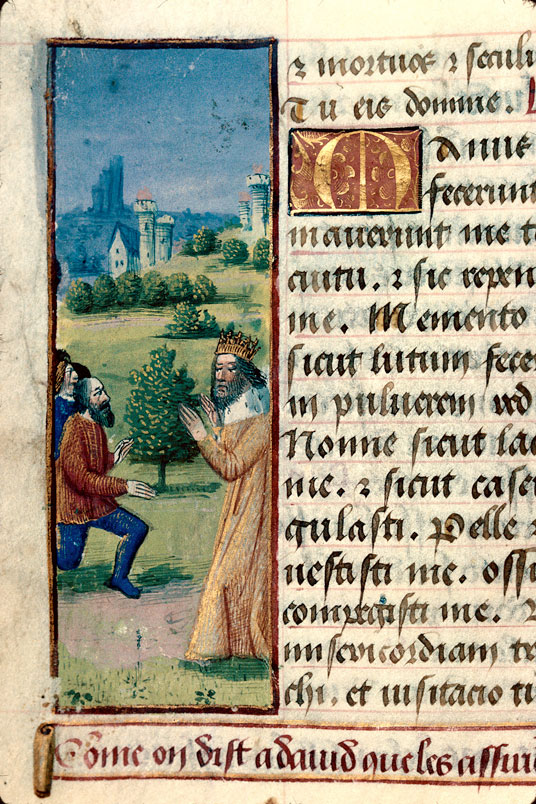 ⁊ mortuos ⁊ seculu
Tu eis domine.
Manus
fecerunt
mauerunt me to
cuitu. ⁊ sic repen
me. Memento
sicut lutum fece
in puluerem red
Nonne sicut lac
me. ⁊ sicut case
gulasti. Pelle ⁊
uestisti me. ossi
compegisti me.
misericordiam
chi. et uisitacio tu
Cōme on dist a dauid que les assiri